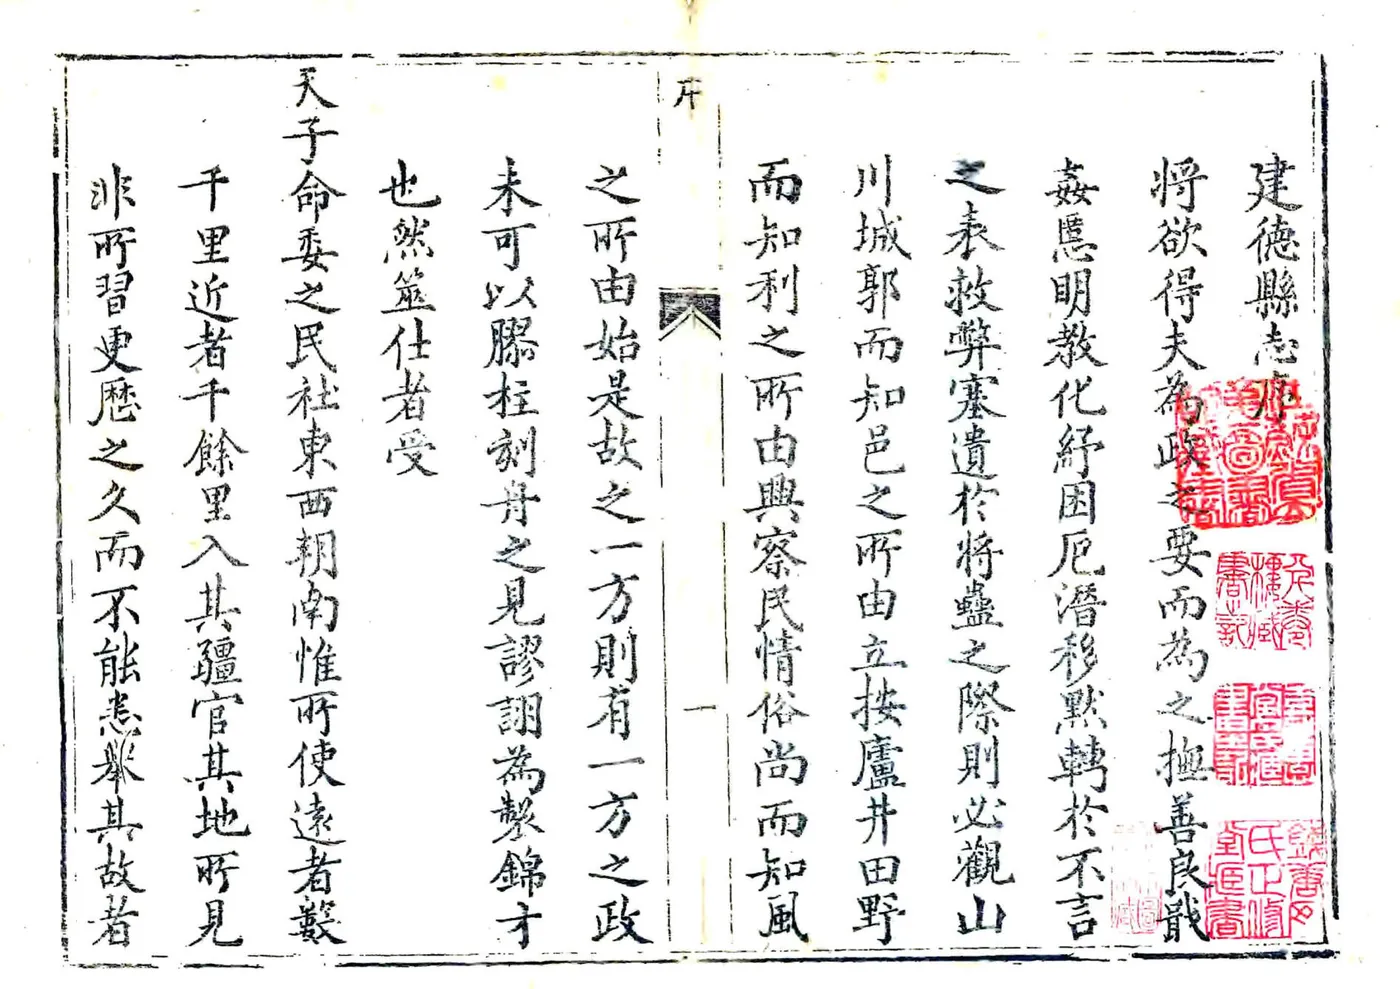 建德縣志序
將欲得夫為政之要而為之撫善良戢
姦慝明教化紓困厄潛移默轉於不言
之表救弊塞遺於將蠱之際則必觀山
川城郭而知邑之所由立按廬井田野
而知利之所由興察民情俗尚而知風
序
一
之所由始是故之一方則有一方之政
未可以膠柱刻舟之見謬詡為製錦才
也然筮仕者受
天子命委之民社東西朔南惟所使遠者數
千里近者千餘里入其疆官其地所見
非所習更歷之久而不能悉舉其故者